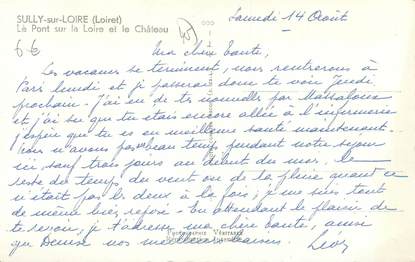 SULLY-sur-LOIRE (Loiret)
Le Pont sur la Loire et le Château
6 €
Samedi 14 Août
Ma chère Tante,
Les vacances se terminent, nous rentrerons à
Paris lundi et je passerai donc te voir Jeudi
prochain. J'ai eu de tes nouvelles par
et j'ai su que tu étais encore allée à l'infirmerie
j'espère que tu es en meilleure santé maintenant.
Nous n'avons pas beau temps pendant notre séjour
ici, sauf trois jours au début du mois, le
reste du temps du vent ou de la pluie quand ce
n'était pas les deux à la fois; je me suis tout
de même bien reposé. En attendant le plaisir de
te revoir, je t'adresse, ma chère Tante, ainsi
que Denise nos meilleurs baisers.
PHOTOGRAPHIE VÉRITABLE